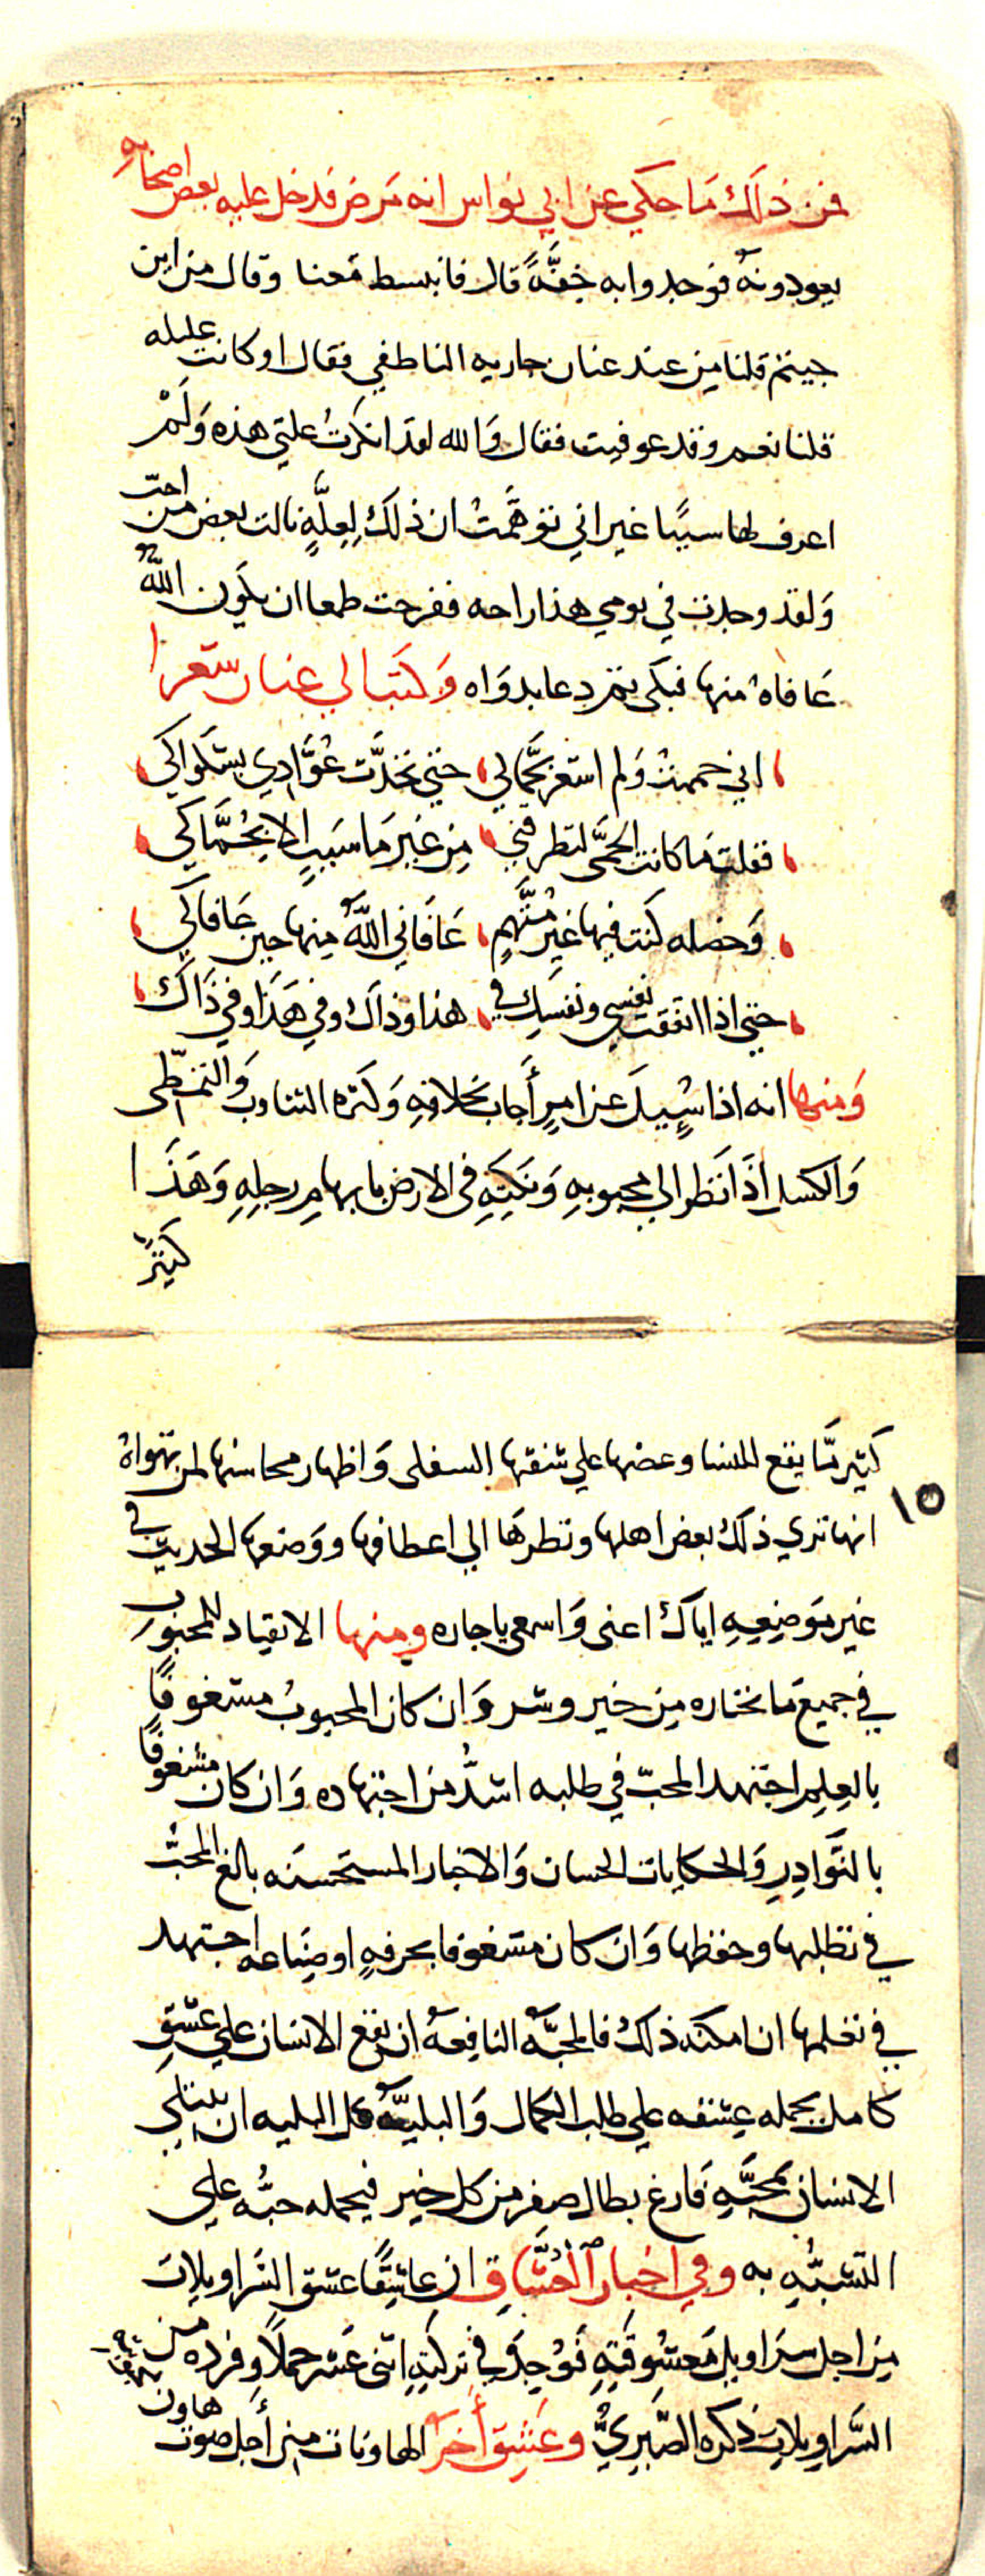 فمن ذلك ما حكي عن ابي نواس انه مرض فدخل عليه بعض اصحابه
يعودونه فوجدوا به خفةً قال فانبسط معنا وقال من اين
جيتم قلنا من عند عنان جاريه الناطفي فقال او كانت عليله
قلنا نعم وقد عوفيت فقال والله لقد انكرت علتي هذه ولم
اعرف لها سببًا غير اني توهمت ان ذلك لعلةٍ نالت بعض من احب
ولقد وجدت في يومي هذا راحه ففرحت طمعا ان يكون الله
عافاه منها فبكى ثم دعا بدواه وكتب الي عنان شعرا
اني حممت ولم اشعر بحمالي حتى تحدّت عوّادي بشكواكي
فقلت ما كانت الحمّى لتطرقني من غير ما سببٍ الا بحمّاكي
وخصله كنت فيها غير متّهمٍ عافاني الله منها حين عافاكي
حتى اذا اتفقت نفسي ونفسك في هذا وذاك وفي هذا وفي ذاك
ومنها انه اذا سيل عن امرٍ أجاب بخلافه وكثره التثاوب والتمطّى
والكسل اذا نظر الي محبوبه ونكته في الارض بابهام رجله وهذا
كثيرٌ
كثير مّا يقع للنسا وعضها علي شفتها السفلى واظهار محاسنها لمن تهواه
١٥
انها تري ذلك بعض اهلها ونظرها الي اعطافها ووضعها الحديث في
غير موضعه اياك اعنى واسمعي يا جاره ومنها الانقياد للمحبوب
في جميع ما يختاره من خير وشر وان كان المحبوب مشغوفًا
بالعلم اجتهد المحبّ في طلبه اشدُّ من اجتهاده وان كان مشغوفًا
بالنوادر والحكايات الحسان والاخبار المستحسنه بالغ المحبّ
في تطلبها وحفظها وان كان مشغوفا بحرفهٍ او صناعه اجتهد
في تعلمها ان امكنه ذلك فالمحبّه النافعه ان يقع الانسان علي عشق
كامل يحمله عشقه علي طلب الكمال والبليّه كل البليه ان يبتلي
الانسان بمحبّهٍ فارغ بطال صفر من كل خير فيحمله حبُّه علي
التشبّه به وفي اخبار العشّاق ان عاشقًا عشق السراويلات
من اجل سراويل معشوقته فوجد في تركته اثنى عشر حملاً وفرده من
السّراويلات ذكره الصّيمريُّ وعشق أخر الهاونات من أجل صوت هاون